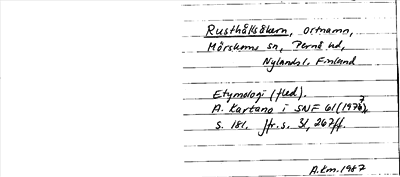 Rusthållsåkern, ortnamn,
Mörskoms sn, Pernå hd,
Nylands l, Finland
Etymologi (fled).
A. Kartano i SNF 61 (1973),
s. 181. Jfr. s. 31, 267ff.
A.Km. 1987